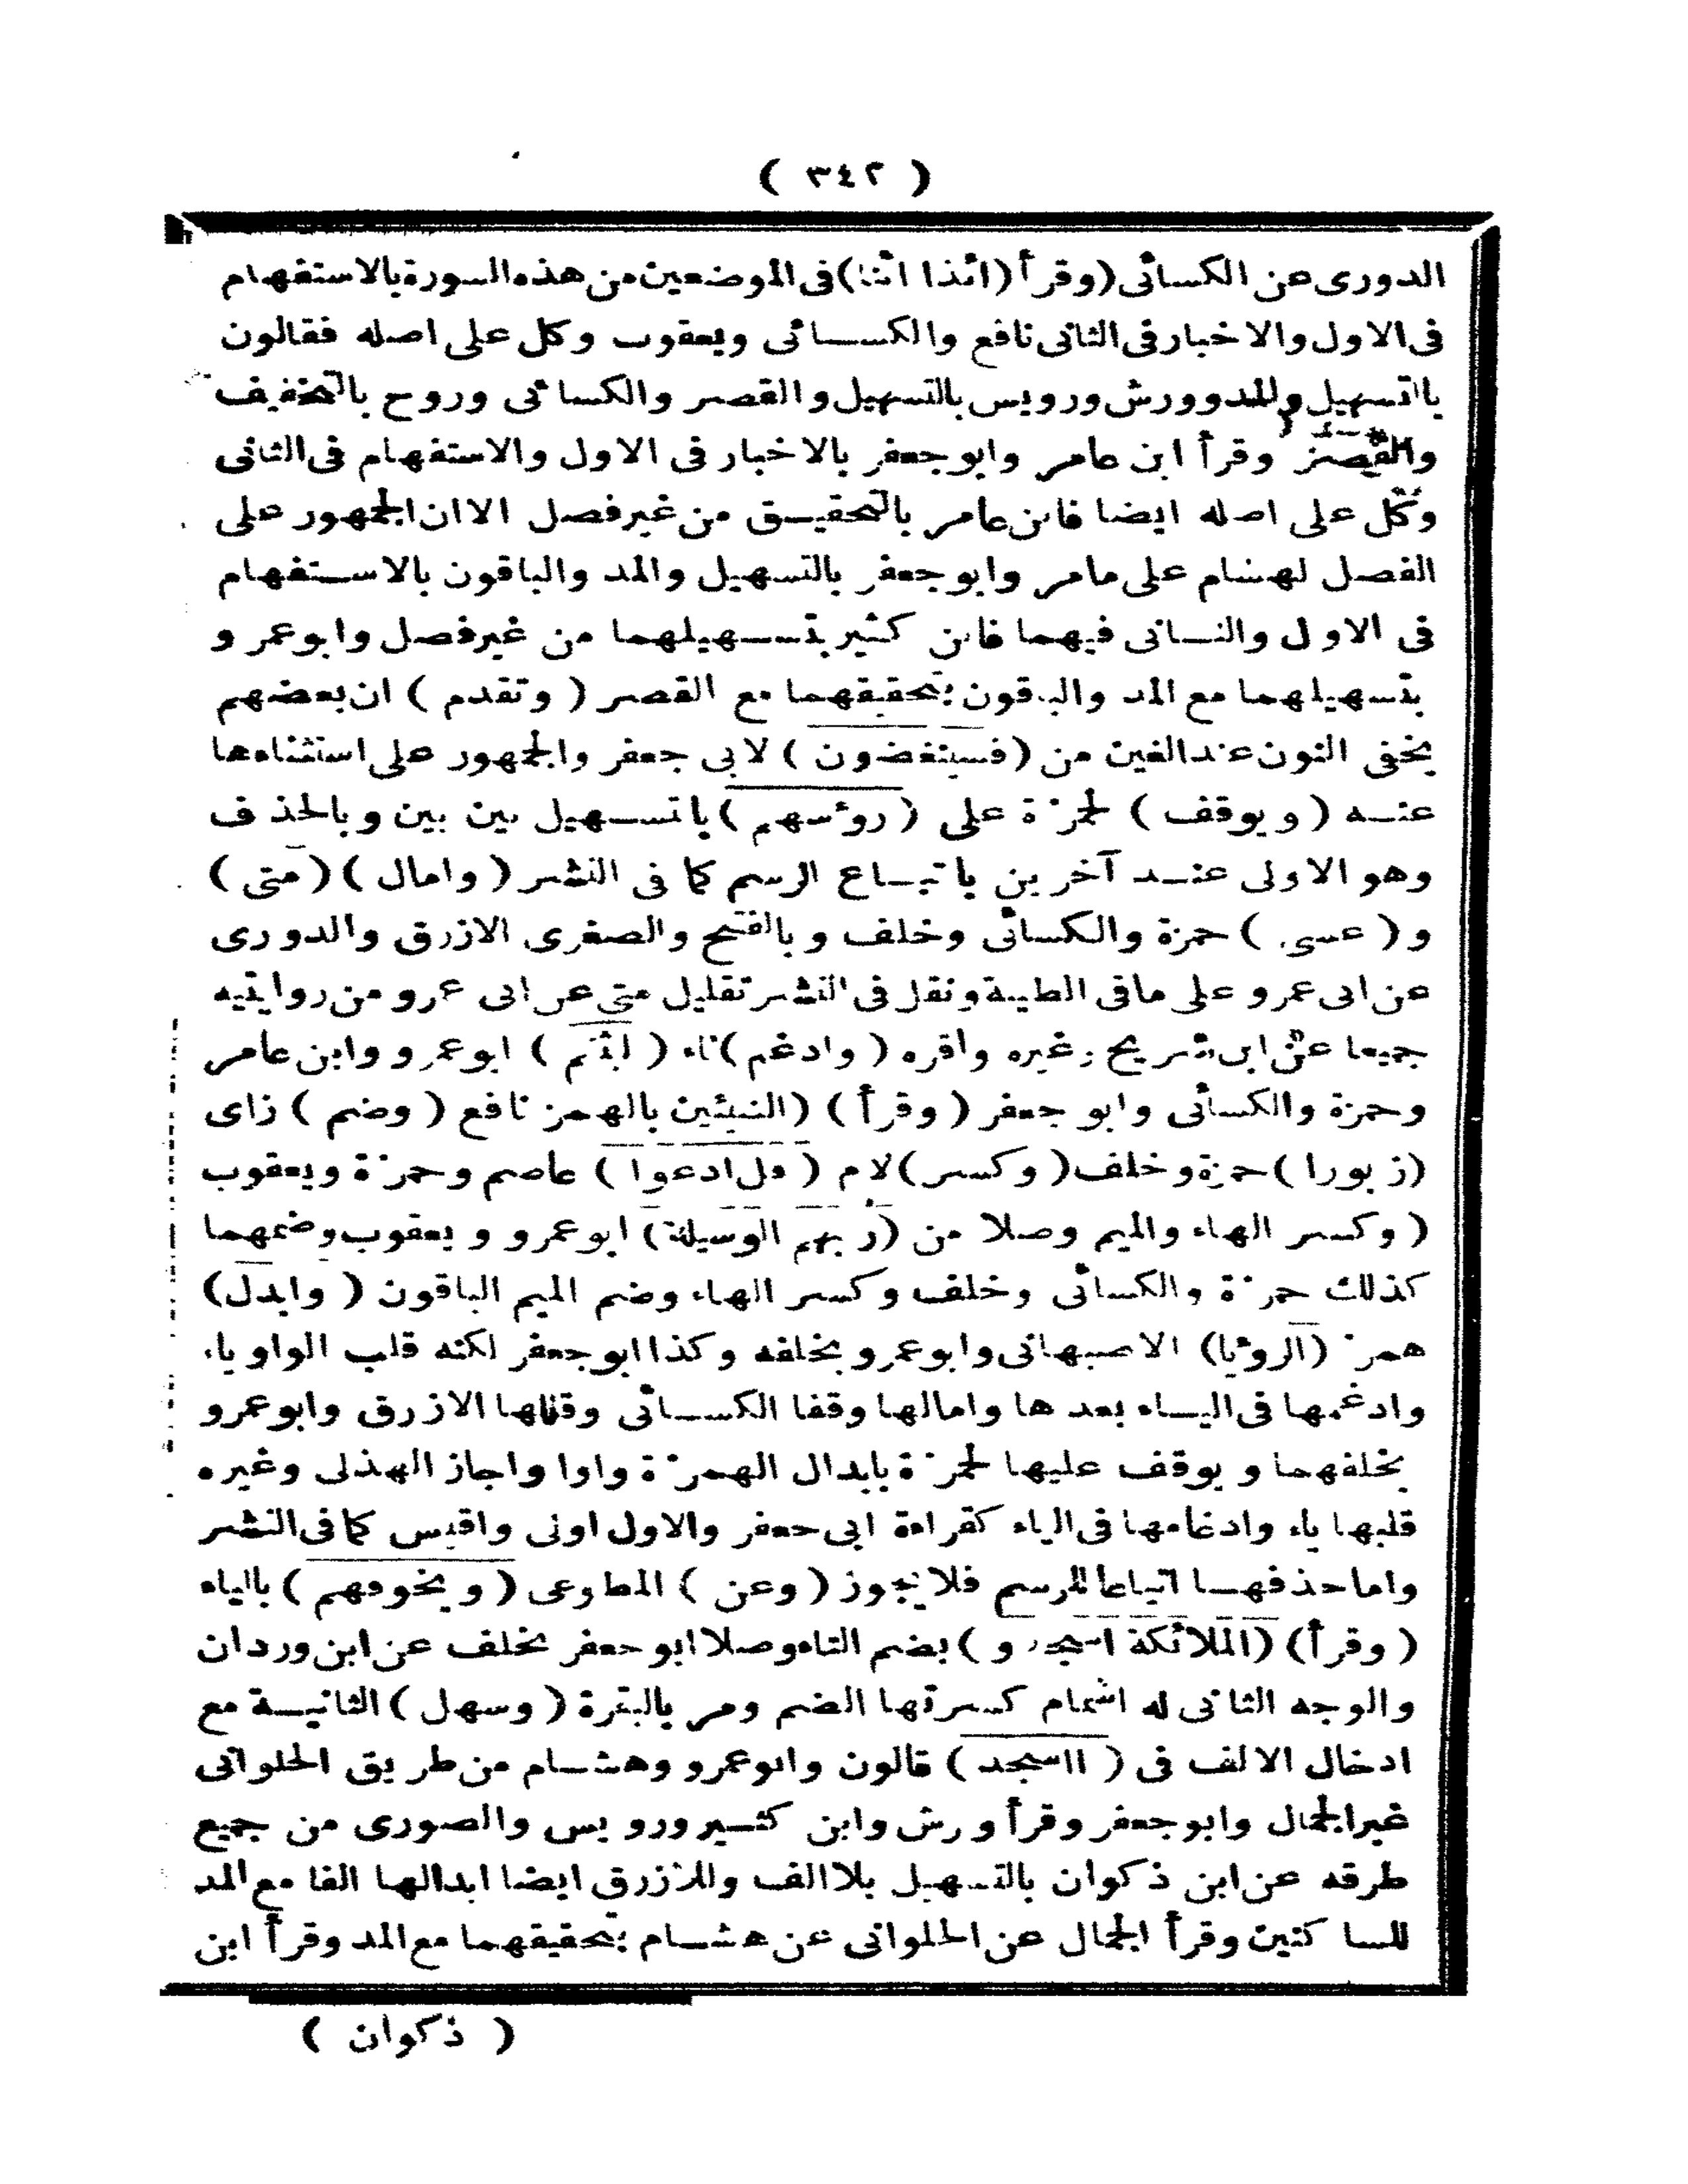 ( ٣٤٢ )
الدورى عن الكسائى (وقرأ (ائذا ائنا) فى الموضعين من هذه السورة بالاستفهام
فى الاول والاخبار فى الثانى نافع والكسائى ويعقوب وكل على اصله فقالون
بالتسهيل والمد وورش ورويس بالتسهيل والقصر والكسائى وروح بالتخفيف
والقصر وقرأ ابن عامر وابو جعفر بالاخبار فى الاول والاستفهام فى الثانى
وكل على اصله ايضا فابن عامر بالتحقيق من غير فصل الا ان الجمهور على
الفصل لهشام على مامر وابو جعفر بالتسهيل والمد والباقون بالاستفهام
فى الاول والثانى فيهما فابن كثير بتسهيلهما من غير فصل وابو عمرو
بتسهيلهما مع المد والباقون بتحقيقهما مع القصر ( وتقدم ) ان بعضهم
يخفى النون عند الغين من (فسينغضون ) لابى جعفر والجمهور على استثناءها
عنه ( ويوقف ) لحمزة على ( رؤسهم ) بالتسهيل بين بين وبالحذف
وهو الاولى عند آخرين باتباع الرسم كما فى النشر ( وامال ) ( متى )
و ( عسى ) حمزة والكسائى وخلف وبالفتح والصغرى الازرق والدورى
عن ابى عمرو على مافى الطيبة ونقل فى النشر تقليل متى عن ابى عمرو من روايتيه
جميعا عن ابن شريح وغيره واقره ( وادغم ) ثاء ( لبثتم ) ابو عمرو وابن عامر
وحمزة والكسائى وابو جعفر ( وقرأ ) (النبيئين بالهمز نافع ( وضم ) زاى
(زبورا ) حمزة وخلف ( وكسر ) لام ( قل ادعوا ) عاصم وحمزة ويعقوب
( وكسر الهاء والميم وصلا من (ربهم الوسيلة ) ابو عمرو ويعقوب وضمهما
كذلك حمزة والكسائى وخلف وكسر الهاء وضم الميم الباقون ( وابدل)
همز (الرؤيا) الاصبهانى وابو عمرو بخلفه وكذا ابو جعفر لكنه قلب الواو ياء
وادغمها فى الياء بعدها وامالها وقفا الكسائى وقللها الازرق وابو عمرو
بخلفهما ويوقف عليها لحمزة بابدال الهمزة واوا واجاز الهذلى وغيره
قلبها ياء وادغامها فى الياء كقراءة ابى جعفر والاول اولى واقيس كما فى النشر
واما حذفها اتباعا للرسم فلا يجوز ( وعن ) المطوعى ( ويخوفهم ) بالياء
( وقرأ) (الملائكة اسجدوا ) بضم التاء وصلا ابو جعفر بخلف عن ابن وردان
والوجه الثانى له اشمام كسرتها الضم ومر بالبقرة ( وسهل ) الثانية مع
ادخال الالف فى ( ااسجد ) قالون وابو عمرو وهشام من طريق الحلوانى
غير الجمال وابو جعفر وقرأ ورش وابن كثير ورويس والصورى من جميع
طرقه عن ابن ذكوان بالتسهيل بلا الف وللازرق ايضا ابدالها الفا مع المد
للساكنين وقرأ الجمال عن الحلوانى عن هشام بتحقيقهما مع المد وقرأ ابن
( ذكوان )